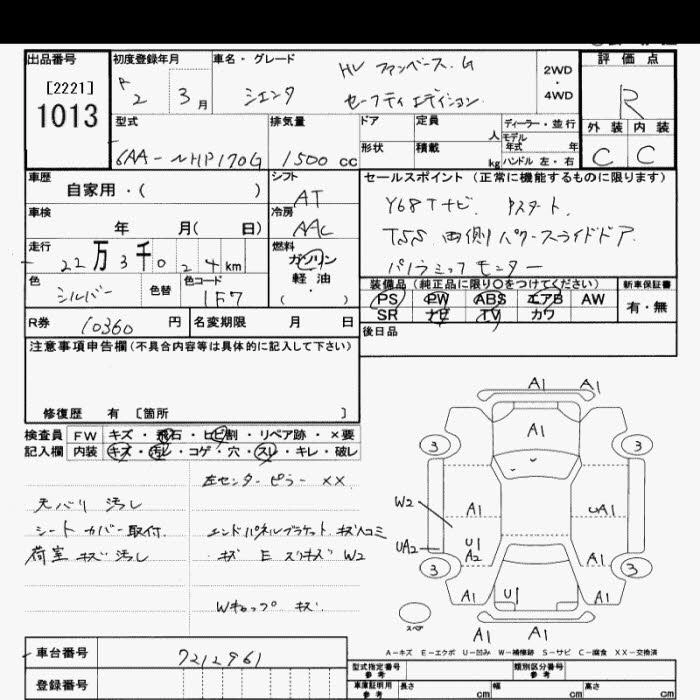 出品番号
[2221]
1013
初度登録年月
R 2 3 月
車名・グレード
シエンタ
HV ファンベース G
セーフティエディション
2WD
・
4WD
評価点
R
外装 内装
C C
型式
6AA-NHP170G
排気量
1500 cc
ドア
定員
人
形状
積載
kg
ディーラー・並行
モデル年式 年
ハンドル 左・右
車歴
自家用・( )
シフト
AT
車検
年 月( 日)
冷房
AAC
走行
22万3千024km
燃料
ガソリン
軽油
( ・ )
色
シルバー
色替
色コード
1F7
セールスポイント(正常に機能するものに限ります)
Y68Tナビ. Pスタート.
TSS 両側パワースライドドア.
パノラミックモニター
装備品(純正品に限り〇をつけてください)
PS PW ABS エアB AW
SR ナビ TV カワ
新車保証書
有・無
後日品
R券 10360 円
名変期限 月 日
注意事項申告欄(不具合内容等は具体的に記入して下さい)
修復歴 有 [箇所 ]
検査員記入欄
FW キズ・飛石・ヒビ割・リペア跡・×要
内装 キズ・汚レ・コゲ・穴・スレ・キレ・破レ
左センターピラー XX
天バリ 汚レ
シートカバー取付.
荷室 キズ 汚レ
エンドパネルブラケット キズ凹コミ
キズ E スリキズ W2
Wキャップ キズ
A1 A1
A1
3 3
W2
A1 UA1
UA2
U1
A2
A1
3 3
A1 U1 A1
スペア
A1 A1
A-キズ E-エクボ U-凹み W-補修跡 S-サビ C-腐食 XX-交換済
車台番号 7212961
登録番号
型式指定番号
参考
類別区分番号
参考
車庫証明用
参考
長さ cm
幅 cm
高さ cm